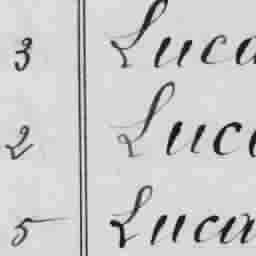 3 Luca
2 Luc
5 Luca